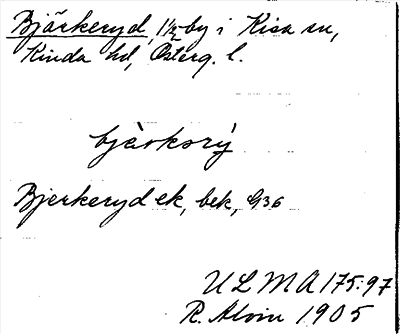 Bjärkeryd, 1/2 by i Kisa sn,
Kinda hd, Österg. l.
bjàrkorý
Bjerkeryd ek, bek, G36
ULMA 175:97
R. Alvin 1905